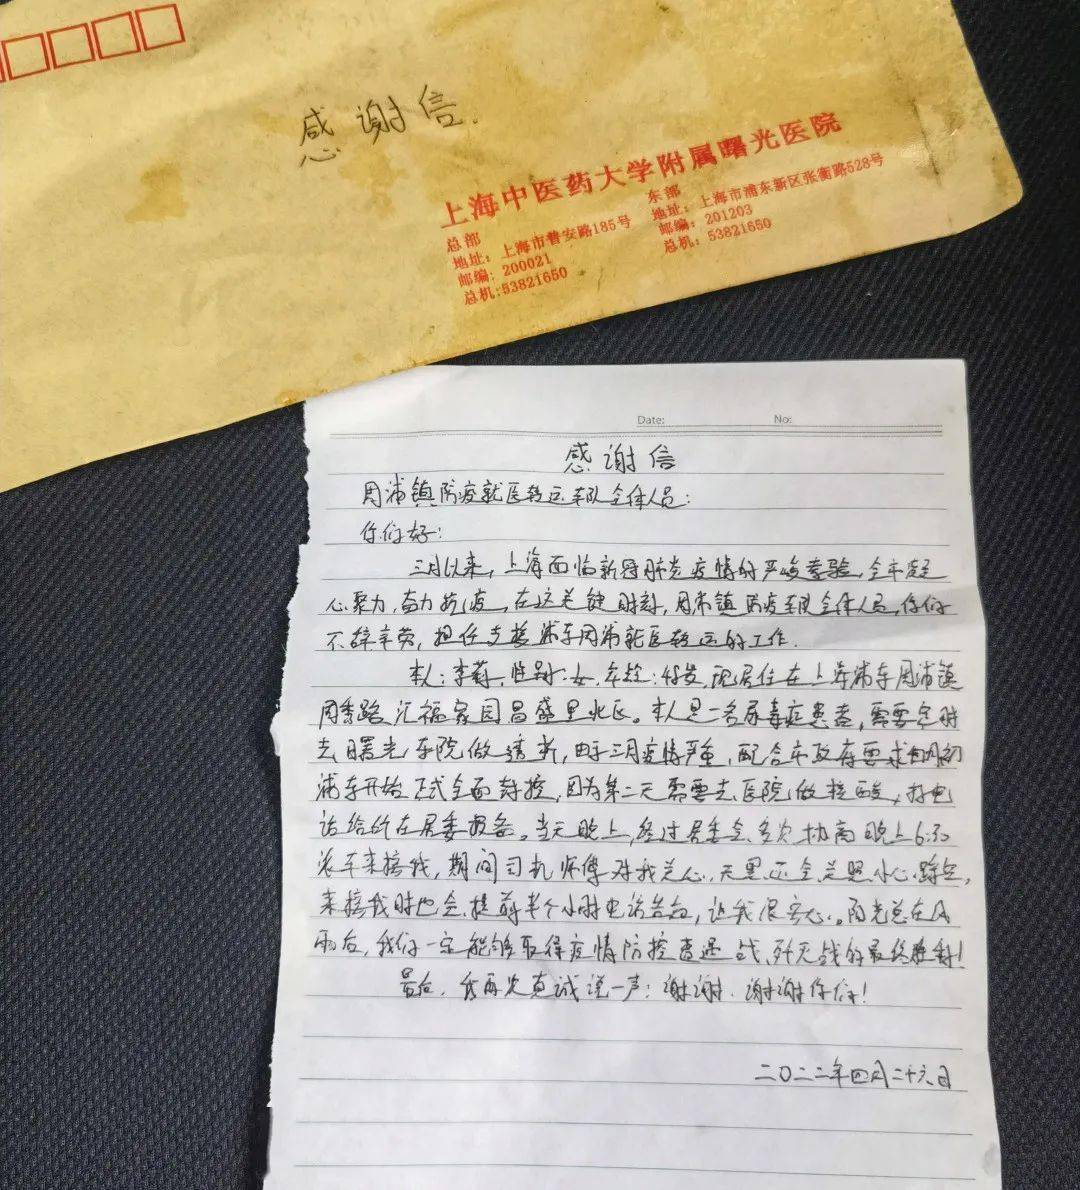 感谢信.
上海中医药大学附属曙光医院
总部
地址：上海市普安路185号
邮编：200021
总机：53821650
东部
地址：上海市浦东新区张衡路528号
邮编：201203
总机：53821650
Date:
No:
感谢信
周浦镇防疫就医转运车队全体人员：
你们好：
三月以来，上海面临新冠肺炎疫情的严峻考验，全市凝
心聚力，奋力抗疫，在这关键时刻，周浦镇防疫车队全体人员，你们
不辞辛劳，担任支援浦东周浦就医转运的工作．
本人：李莉，性别：女，年龄：48岁，现居住在上海浦东周浦镇
周秀路汇福家园昌盛里北区。本人是一名尿毒症患者，需要定时
去曙光东院做透析，由于三月疫情严重，配合市政府要求
浦东开始正式全面封控，因为第二天需要去医院做核酸，打电
话给所在居委报备。当天晚上，经过居委会多次协商晚上6:30
派车来接我，期间司机师傅对我关心，天黑还会关照小心踏空，
来接我时也会提前半个小时电话告知，让我很安心。阳光总在风
雨后，我们一定能够取得疫情防控遭遇战、歼灭战的最终胜利！
最后，我再次真诚说一声：谢谢．谢谢你们！
二〇二二年四月二十六日